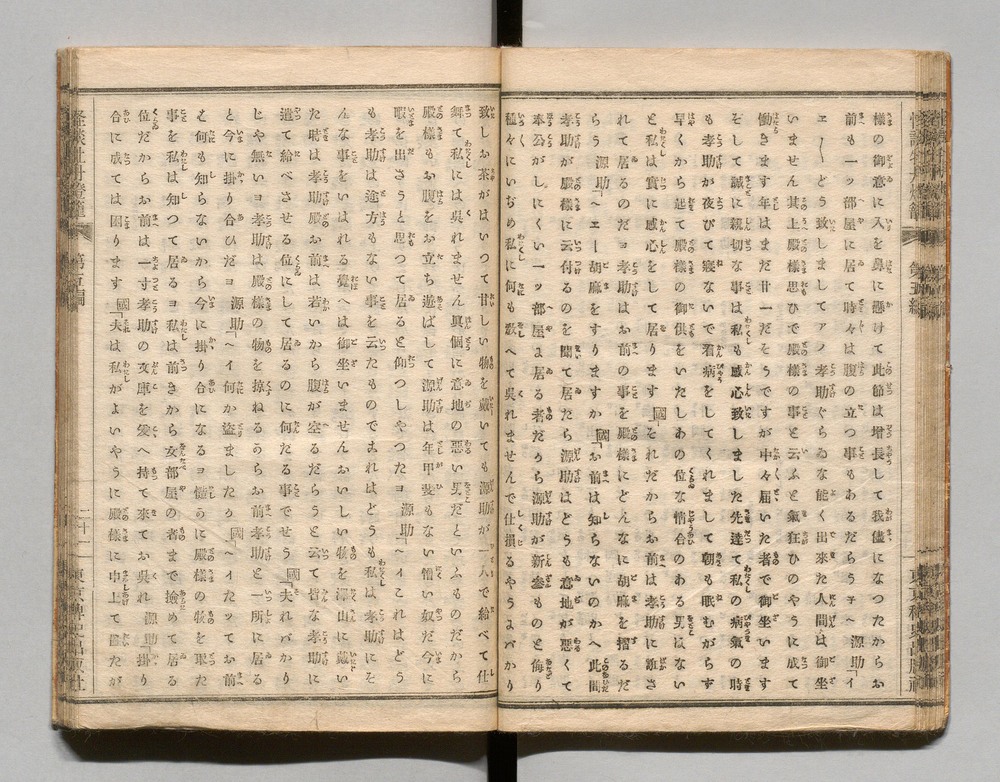 様の御意に入を鼻に懸けて此節は増長して我儘になつたからお
前も一ッ部屋に居て時々は腹の立つ事もあるだらうチ 源助「イ
エ〳〵どう致しましてアノ孝助ぐらゐな能く出來た人間は御坐
いません其上殿様思ひで殿様の事と云ふと氣狂ひのやうに成て
働きます年はまだ廿一だそうですが中々届いた者で御坐います
そして誠に親切な事は私も感心致しました先達て私の病氣の時
も孝助が夜びて寐ないで看病をしてくれまして朝も眠むがらず
早くから起て殿様の御供をいたしあの位な情合のある男はない
と私は實に感心をして居ります 國「それだからお前は孝助に誑さ
れて居るのだヨ孝助はお前の事を殿様にどんなに胡麻を摺るだ
らう 源助「ヘエー胡麻をすりますか 國「お前は知らないのかへ此間
孝助が殿様に云付るのを聞て居たら源助はどうも意地が悪くて
奉公がしにくい一ッ部屋に居る者だから源助が新参ものと侮り
種々にいぢめ私に何も教へて呉れませんで仕損るやうにバかり
致しお茶がはいつて甘しい物を戴いても源助が一人で給べて仕
舞て私には呉れません眞個に意地の悪い男だといふものだから
殿様もお腹をお立ち遊ばして源助は年甲斐もない憎い奴だ今に
暇を出さうと思つて居ると仰つしやつたヨ 源助「ヘイこれはどう
も孝助は途方もない事を云たものであれはどうも私は孝助にそ
んな事をいはれる覺へは御坐いませんおいしい物を澤山に戴い
た時は孝助殿お前は若いから腹が空るだらうと云て皆な孝助に
遣て給べさせる位にして居るのに何たる事でせう 國「夫れバかり
じや無いヨ孝助は殿様の物を掠ねるからお前孝助と一所に居る
と今に掛り合ひだヨ 源助「ヘイ何か盗ましたか 國「ヘイたッてお前
は何も知らないから今に掛り合になるヨ慥かに殿様の物を取た
事を私は知つて居るヨ私は前きから女部屋の者まで撿めて居る
位だからお前は一寸孝助の文庫を爰へ持て來てお呉れ 源助「掛り
合に成ては困ります 國「夫は私がよいやうに殿様に申上て置たが
怪談牡丹燈籠
第五編
二十一
東京稗史出版社